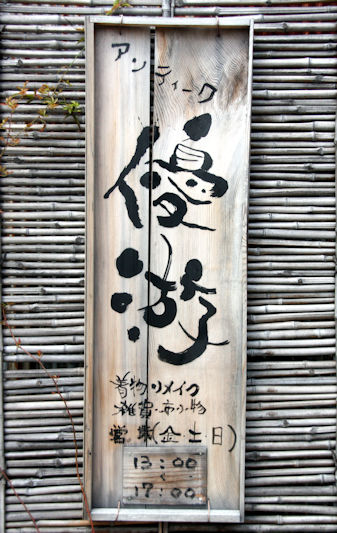 アンティーク
優游
着物リメイク
雑貨・布小物
営業(金・土・日)
13:00
〜
17:00